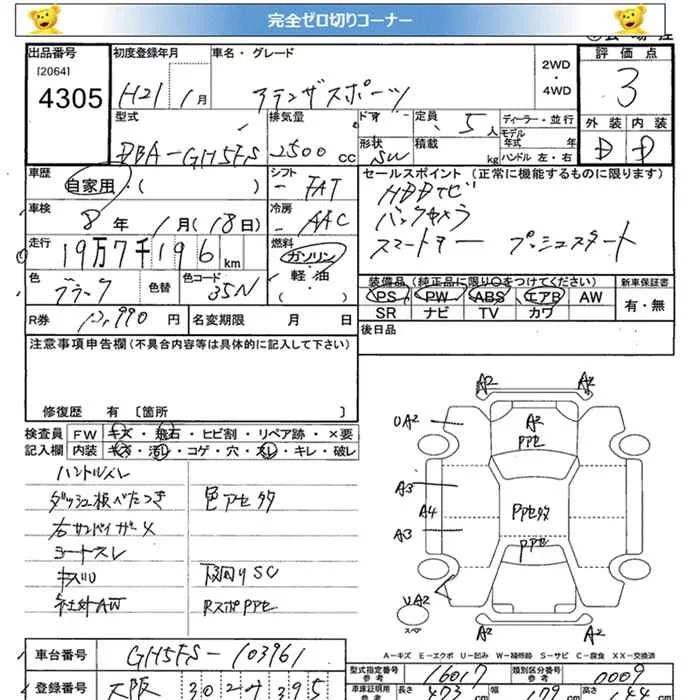 完全ゼロ切りコーナー
出品番号
[2064]
4305
初度登録年月
H21 1月
車名・グレード
アテンザスポーツ
2WD
・
4WD
評価点
3
型式
DBA-GH5FS
排気量
2500 cc
ドア
形状
SW
定員
5人
積載
kg
ディーラー・並行
モデル
年式 年
ハンドル 左・右
外装 内装
D D
車歴
自家用・( )
シフト
FAT
セールスポイント (正常に機能するものに限ります)
HDDナビ
バックカメラ
スマートキー プッシュスタート
車検
8年 1月(18日)
冷房
AAC
走行
19万7千196km
燃料
ガソリン
軽・油
・( )
色
ブラック
色替
色コード
35N
装備品 (純正品に限り○をつけてください)
PS PW ABS エアB AW
SR ナビ TV カワ
新車保証書
有・無
R券
12,990円
名変期限 月 日
後日品
注意事項申告欄(不具合内容等は具体的に記入して下さい)
修復歴 有 [箇所 ]
検査員 FW キズ・飛石・ヒビ割・リペア跡・×要
記入欄 内装 キズ・汚レ・コゲ・穴・スレ・キレ・破レ
ハンドルスレ
ダッシュ板べたつき
色アセ多
右サンバイザーメ
シートスレ
キズ
下回りSC
社外AW
RスポPPセ
A2 A2
A2
PPセ
A2
A3
A4
A3
PPセ多
PPセ
A2
スペア
A2 A2
A-キズ E-エクボ U-凹み W-補修跡 S-サビ C-腐食 XX-交換済
車台番号
GH5FS-103961
型式指定番号
参考
16017
類別区分番号
参考
0009
登録番号
大阪 302 395
車庫証明用
参考
長さ
473 cm
幅
179 cm
高さ
144 cm